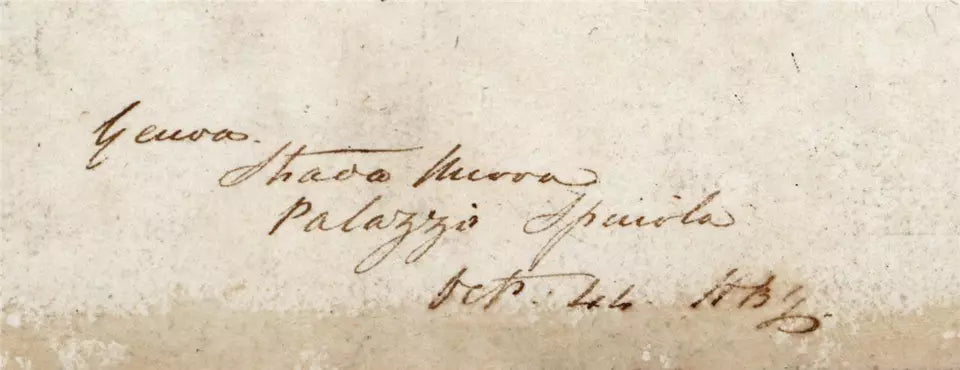 Genova.
Strada Nuova
Palazzo Spinola
Oct.